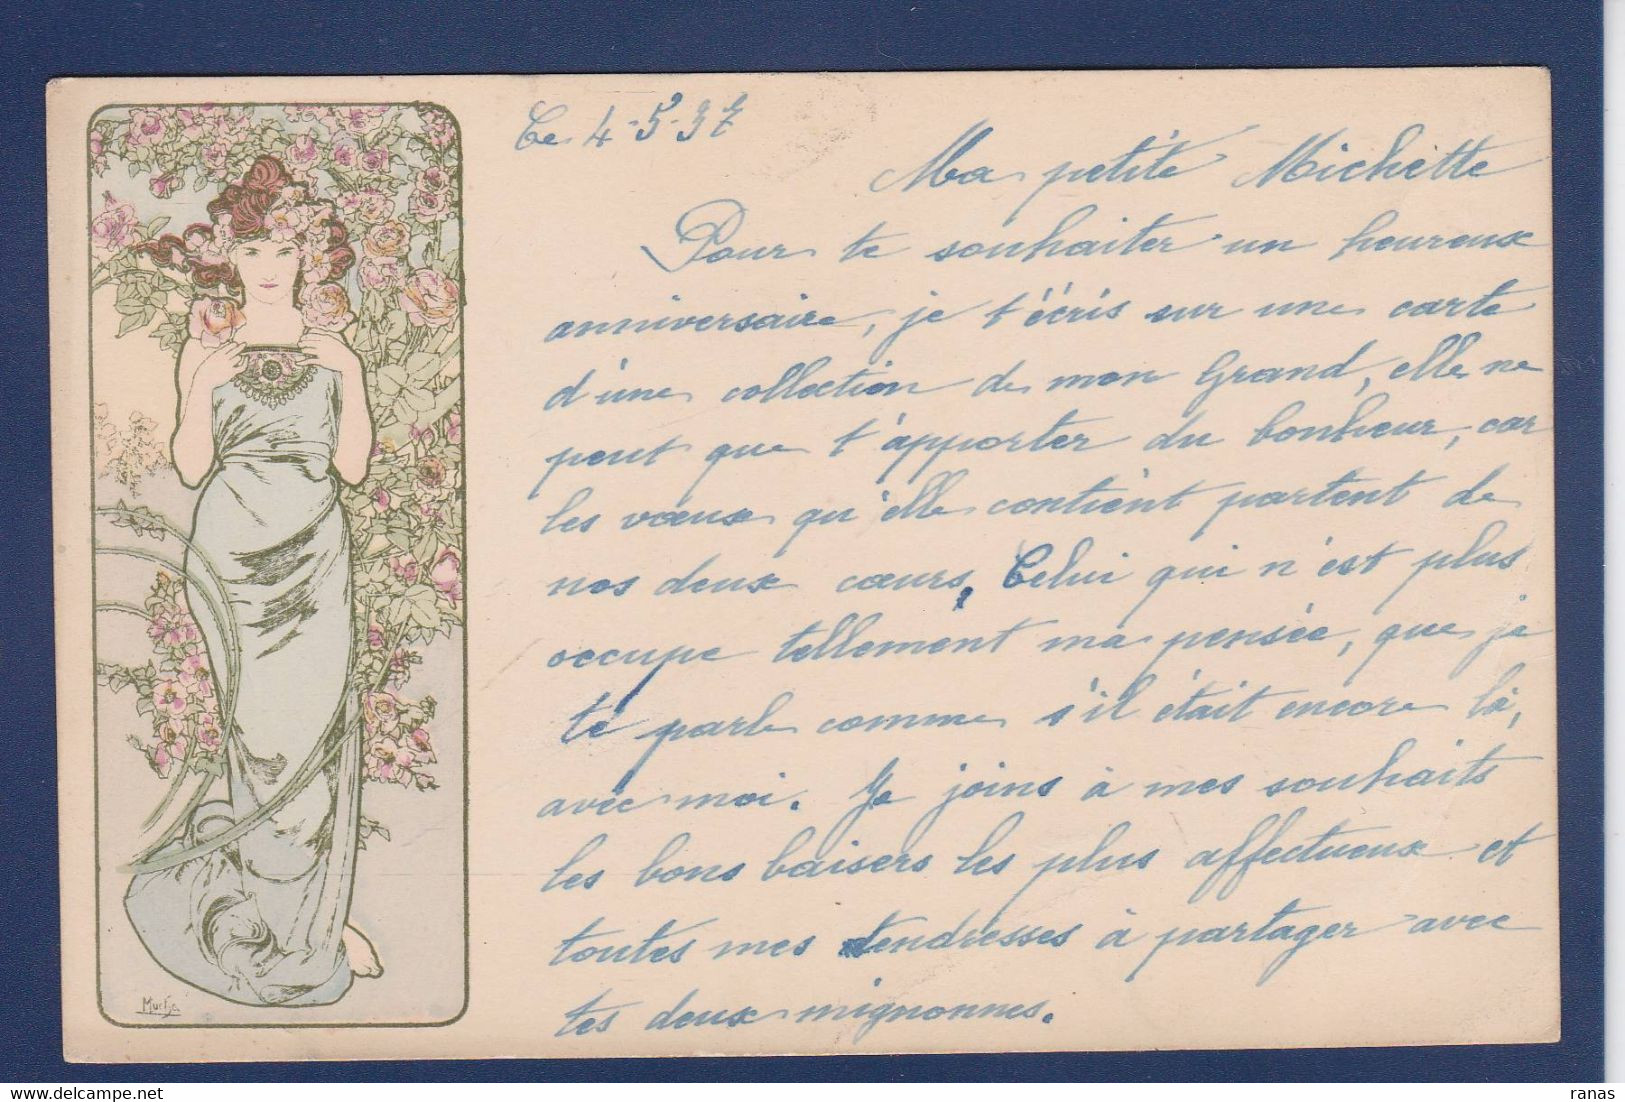 Ce 4-5-37
Ma petite Michette
Pour te souhaiter un heureux
anniversaire, je t'écris sur une carte
d'une collection de mon Grand, elle ne
peut que t'apporter du bonheur, car
les vœux qu'elle contient partent de
nos deux cœurs. Celui qui n'est plus
occupe tellement ma pensée, que je
te parle comme s'il était encore là,
avec moi. Je joins à mes souhaits
les bons baisers les plus affectueux et
toutes mes tendresses à partager avec
tes deux mignonnes.
Mucha
ranas